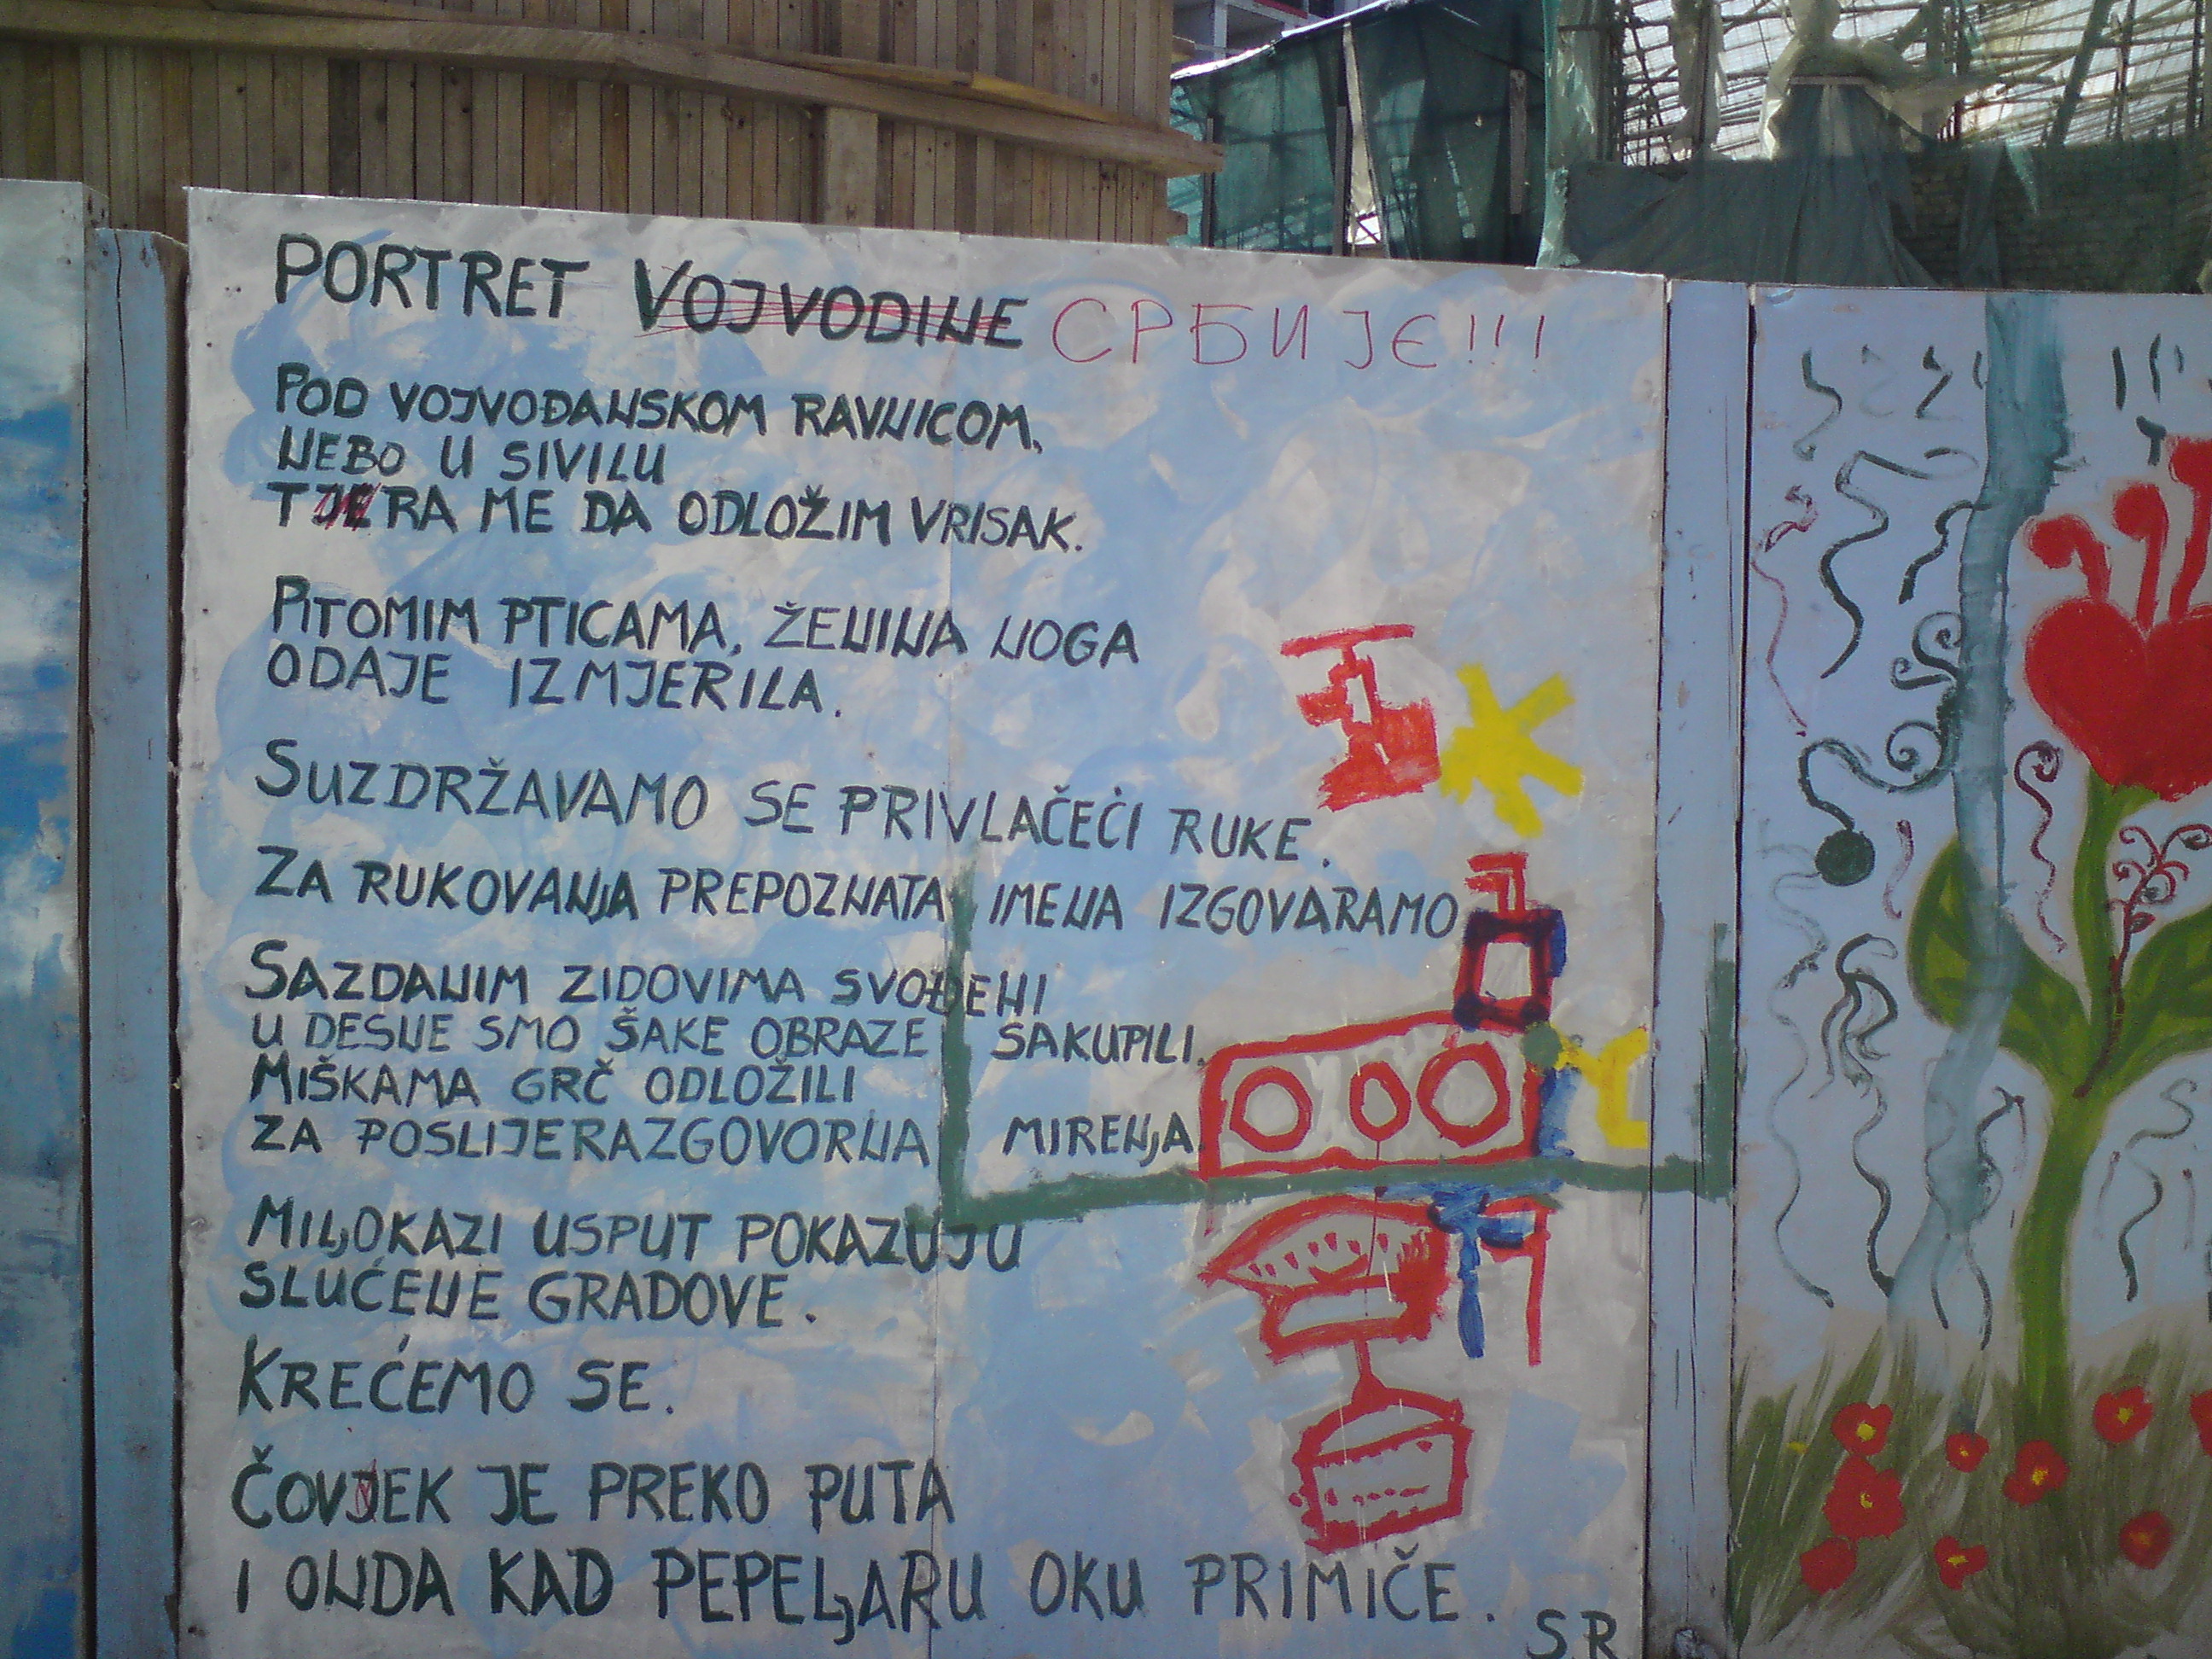 PORTRET VOJVODINE СРБИЈЕ!!!
POD VOJVOĐANSKOM RAVNICOM,
NEBO U SIVILU
TJERA ME DA ODLOŽIM VRISAK.
PITOMIM PTICAMA, ŽENINA NOGA
ODAJE IZMJERILA.
SUZDRŽAVAMO SE PRIVLAČEĆI RUKE.
ZA RUKOVANJA PREPOZNATA IMENA IZGOVARAMO
SAZDANIM ZIDOVIMA SVOĐENI
U DESNE SMO ŠAKE OBRAZE SAKUPILI.
MIŠKAMA GRČ ODLOŽILI
ZA POSLIJERAZGOVORNA MIRENJA.
MILJOKAZI USPUT POKAZUJU
SLUĆENE GRADOVE.
KREĆEMO SE.
ČOVJEK JE PREKO PUTA
I ONDA KAD PEPELJARU OKU PRIMIČE.
S.R